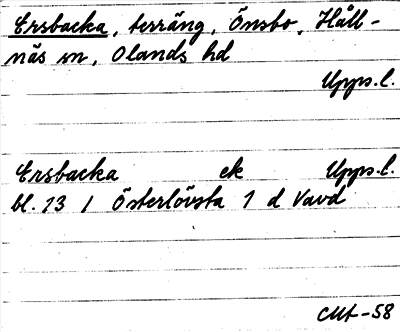 Ersbacka, terräng, Önsbo, Håll-
näs sn, Olands hd
Upps.l.
Ersbacka ek Upps.l.
bl. 13 / Österlövsta 1 d Vavd
CMt-58